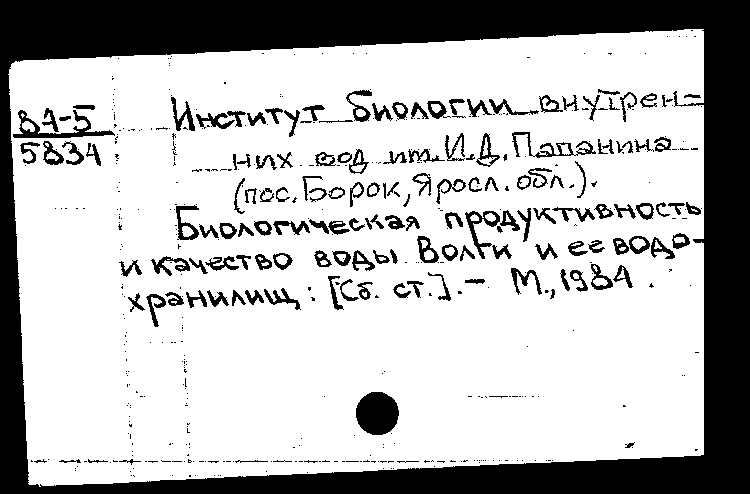 84-5
5834
Институт биологии внутрен-
них вод им. И.Д. Папанина
(пос. Борок, Яросл. обл.).
Биологическая продуктивность
и качество воды Волги и ее водо-
хранилищ: [Сб. ст.]. - М., 1984.